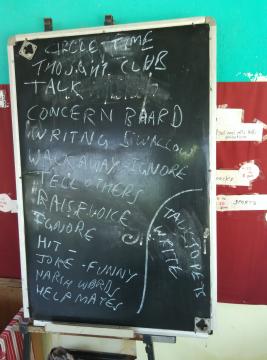 CIRCLE TIME
THOUGHT CLUB
TALK
CONCERN BAARD
WRITNG SWALLOW
WALK AWAY-IGNORE
TELL OTHERS
RAISE VOICE
IGNORE
HIT -
JOKE - FUNNY
HARSH WORDS
HELP MATES
TALK TO
WRITE
SPORTS